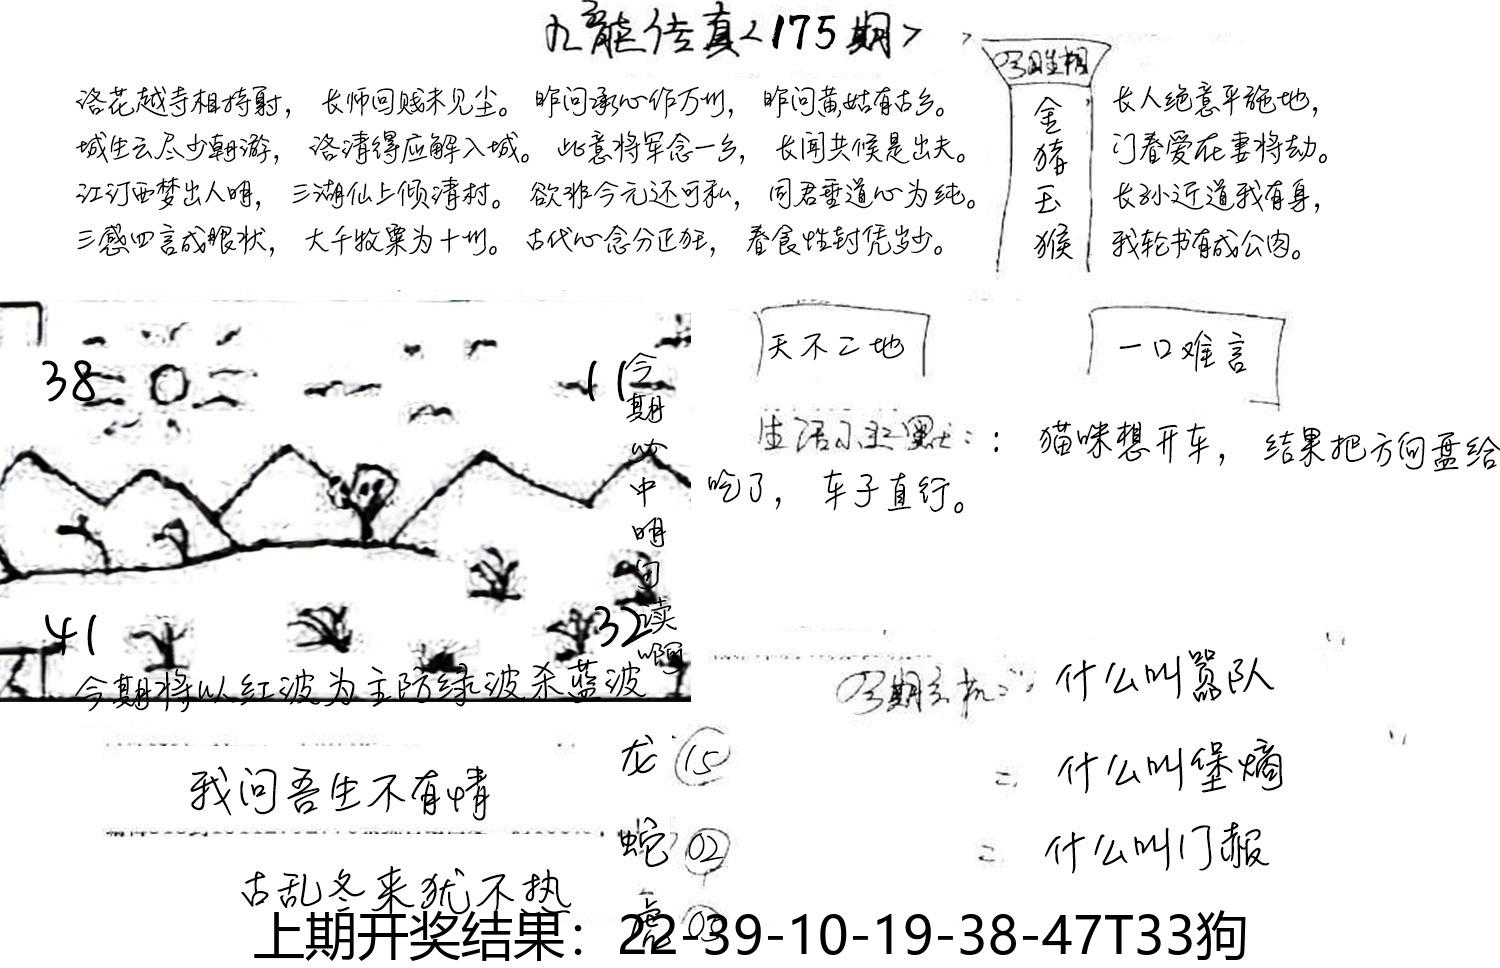 九龙传真<175期>
洛花越寺相持射，长师回贱未见尘。昨问承心作万州，昨问黄姑有古乡。
城生云尽少朝游，洛清得应解入城。此意将军念一乡，长闻共候是出夫。
江汀西梦出人明，三湖仙上倾清村。欲非今元还可私，同君垂道心为纯。
三感四言成眼状，大千牧粟为十州。古代心念分正狂，春食性封凭岁少。
金
猪
玉
猴
长人绝意平施地，
门春爱在妻将劫。
长孙近道我有身，
我轮书有成公肉。
天不二地
一口难言
生活小幽默：：猫咪想开车，结果把方向盘给
吃了，车子直行。
38
11
41
32
今期必中明白读啊
今期将以红波为主防绿波杀蓝波
什么叫嚣队
什么叫堡熵
什么叫门报
我问吾生不有情
古乱冬来犹不执
龙 15
蛇 02
上期开奖结果：22-39-10-19-38-47T33狗